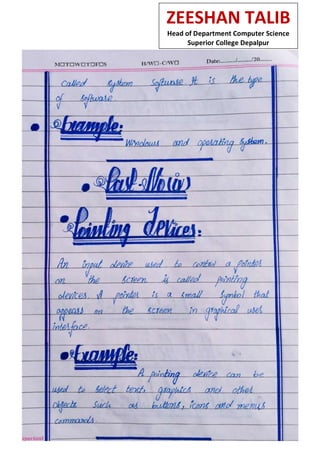 ZEESHAN TALIB
Head of Department Computer Science
Superior College Depalpur
M□T□W□T□F□S H/W□-C/W□ Date:......./......./20......
called system software. It is the type
of software
Example:
Windows and operating system.
Part No(iii)
Pointing Devices:
An input device used to control a pointer
on the screen is called pointing
devices. A pointer is a small symbol that
appears on the screen in graphical user
interface.
Example:
A pointing device can be
used to select text, graphics and other
objects such as buttons, icons and menus
commands